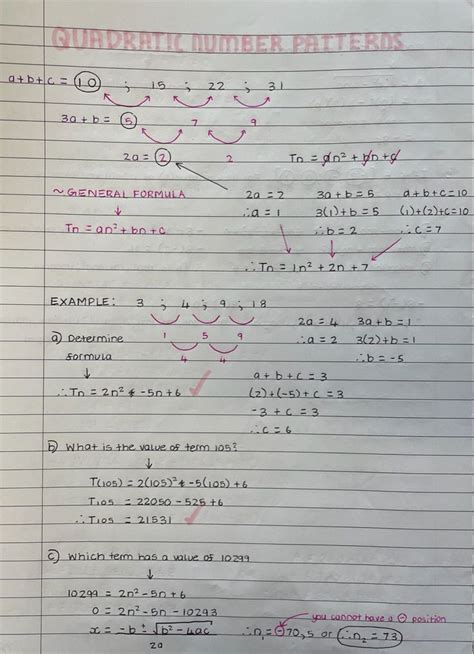 QUADRATIC NUMBER PATTERNS
a+b+c = 10 ; 15 ; 22 ; 31
3a+b = 5 7 9
2a = 2 2 Tn = an² + bn + c
~ GENERAL FORMULA 2a = 2 3a+b = 5 a+b+c = 10
∴a = 1 3(1)+b = 5 (1)+(2)+c=10
Tn = an² + bn + c ∴b = 2 ∴c = 7
∴Tn = 1n² + 2n + 7
EXAMPLE: 3 ; 4 ; 9 ; 18
2a = 4 3a+b = 1
a) Determine 1 5 9 ∴a = 2 3(2)+b = 1
formula 4 4 ∴b = -5
a + b + c = 3
∴Tn = 2n² -5n+6 (2)+(-5)+c = 3
-3 + c = 3
∴c = 6
b) What is the value of term 105?
T(105) = 2(105)² -5(105)+6
T105 = 22050 - 525 + 6
∴T105 = 21531
c) Which term has a value of 10299
10299 = 2n² - 5n + 6
0 = 2n² - 5n - 10293
you cannot have a ⊖ position
x = -b ± √b² - 4ac ∴n₁ = -70,5 or ∴n₂ = 73
2a